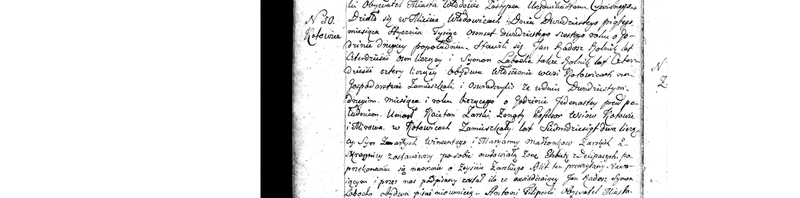 Obywatel Miasta Włodowic Zastępca
N 30. Działo się w Mieście Włodowicach Dnia Dwudziestego piątego
Kotowice miesiąca Stycznia Tysiąc osmset dwudziestego szostego roku o go-
dzinie drugiey popołudniu. Stawili się Jan Radosz Rolnik lat
Czterdzieści osm liczący i Szymon Labocha także Rolnik lat Czter-
dzieści cztery liczący obydwa Włościanie w wsi Kotowicach na
Gospodarstwie Zamieszkali i Oswiadczyli że w dniu Dwudziestym
drugim miesiąca i roku bieżącego o Godzinie Jedenastey przed po-
łudniem. Umarł Kaietan Zarski Żonaty Possessor
i Mirowa w Kotowicach Zamieszkały lat Siedmdziesiąt dwa liczą-
cy Syn Zmarłych Wincentego i Maryanny Małżonków Zarskich z
zostawiwszy po sobie owdowiałą żonę Elżbietę z po
przekonaniu się naocznie o Zeyściu Zarskiego Akt ten przeczytany Stawa-
iącym i przez nas podpisany został ile ze oswiadczaiący Jan Radosz Szymon
Labocha obydwa pisać nieumieią. Antoni Filipecki Obywatel Miasta